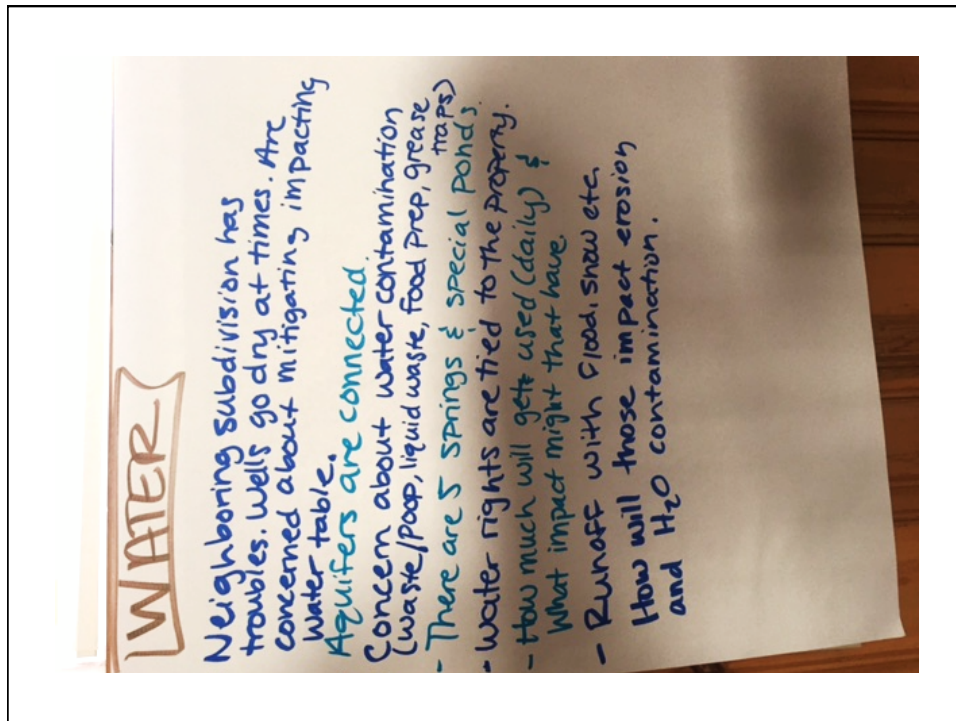 WATER
Neighboring subdivision has
troubles. Wells go dry at times. Are
concerned about mitigating impacting
water table.
Aquifers are connected.
Concern about water contamination
(waste/poop, liquid waste, food prep, grease
traps)
- There are 5 springs & special ponds.
- Water rights are tied to the property.
- How much will get used (daily) &
What impact might that have
- Runoff with flood, snow etc.
How will those impact erosion
and H2O contamination.